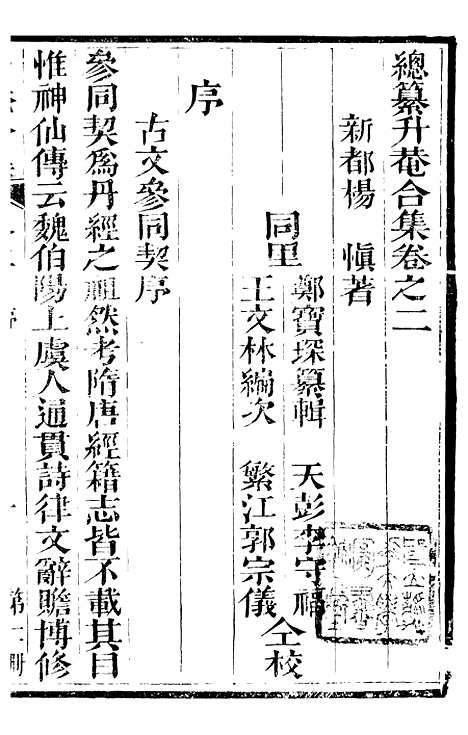 總纂升菴合集卷之二
新都楊　慎著
同里
鄭寶琛纂輯　天彭李守福
王文林編次　繁江郭宗儀
仝校
序
古文參同契序
參同契爲丹經之祖然考隋唐經籍志皆不載其目
惟神仙傳云魏伯陽上虞人通貫詩律文辭贍博修
序　一　第二册